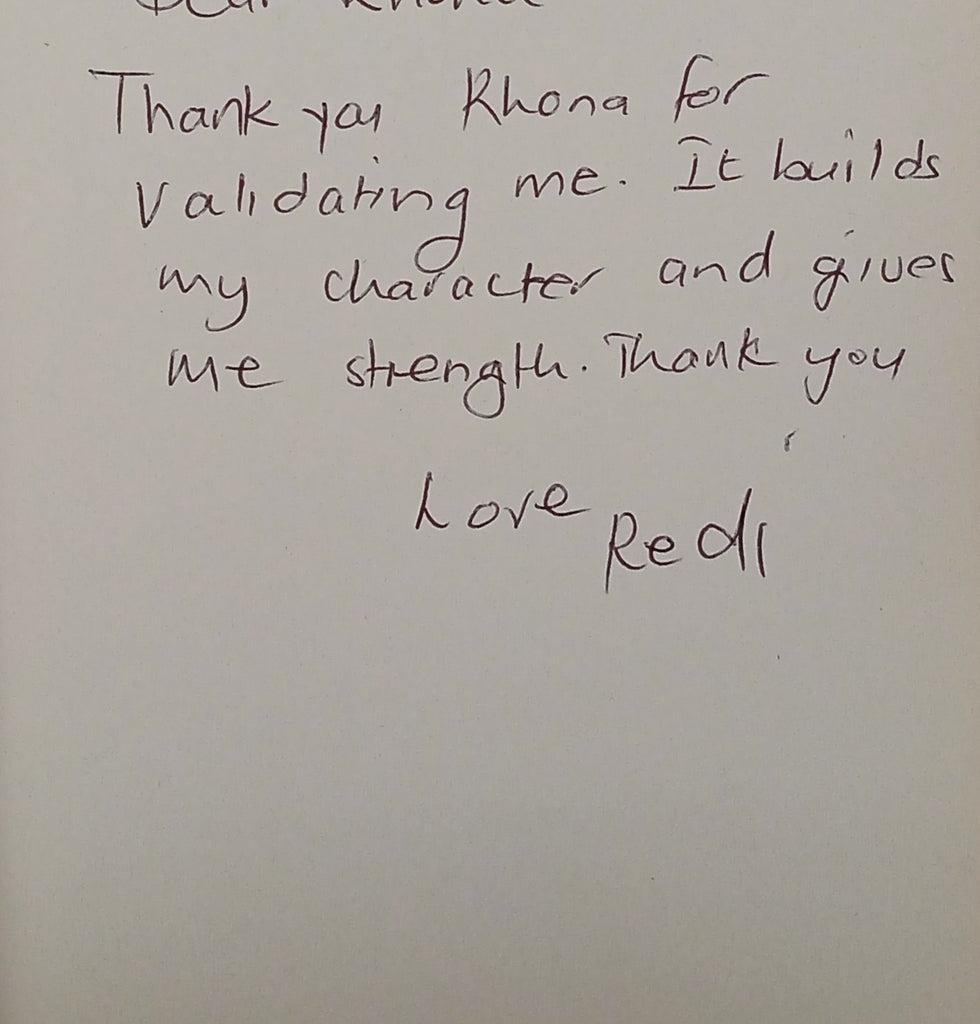 Dear Rhona
Thank you Rhona for
validating me. It builds
my character and gives
me strength. Thank you
Love Redi